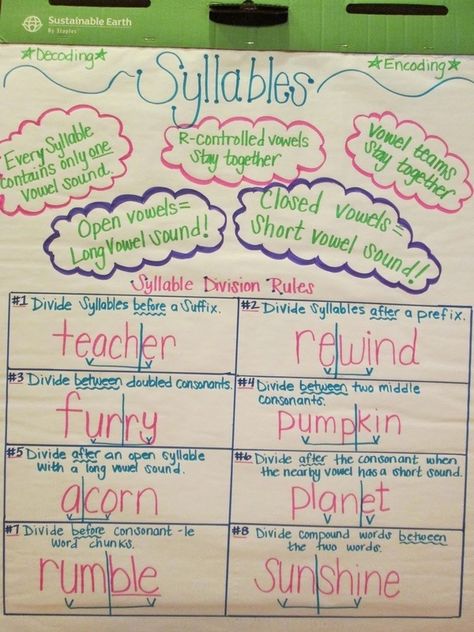 Sustainable Earth
By Staples
Decoding
Encoding
Syllables
Every Syllable
contains only one
vowel sound.
R-controlled vowels
stay together
Vowel teams
stay together
Open vowels=
Long Vowel sound!
Closed vowels=
Short vowel sound!
Syllable Division Rules
#1 Divide Syllables before a Suffix.
teacher
#2 Divide Syllables after a prefix.
rewind
#3 Divide between doubled consonants.
furry
#4 Divide between two middle
consonants.
pumpkin
#5 Divide after an open syllable
with a long vowel sound.
acorn
#6 Divide after the consonant when
the nearby vowel has a short sound.
planet
#7 Divide before consonant -le
word chunks.
rumble
#8 Divide compound words between
the two words.
sunshine